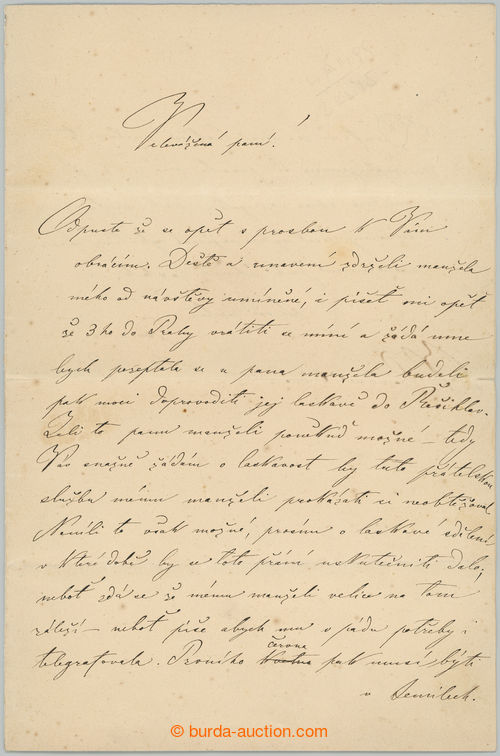 Velevážená paní!
Odpusťte že se opět s prosbou k Vám
obracím. Déšť a unavení zdrželi manžela
mého od návštěvy umíněné, i píšeť mi opět
že 3ho do Prahy vrátiti se míní a žádá mne
bych pozeptala se u pana manžela budeli
pak moci doprovoditi jej laskavě do
Zdali to panu manželi poněkud možné – tedy
Vás snažně žádám o laskavost by tuto přátelskou
službu mému manželi prokázati si neobtěžoval
Neníli to však možné, prosím o laskavé sdělení
v které době by se toto přání uskutečniti dalo;
neboť zdá se že mému manželi velice na tom
záleží – neboť píše abych mu v pádu potřeby i
telegrafovala. Prvního června pak musí býti
v Semilech.
burda-auction.com